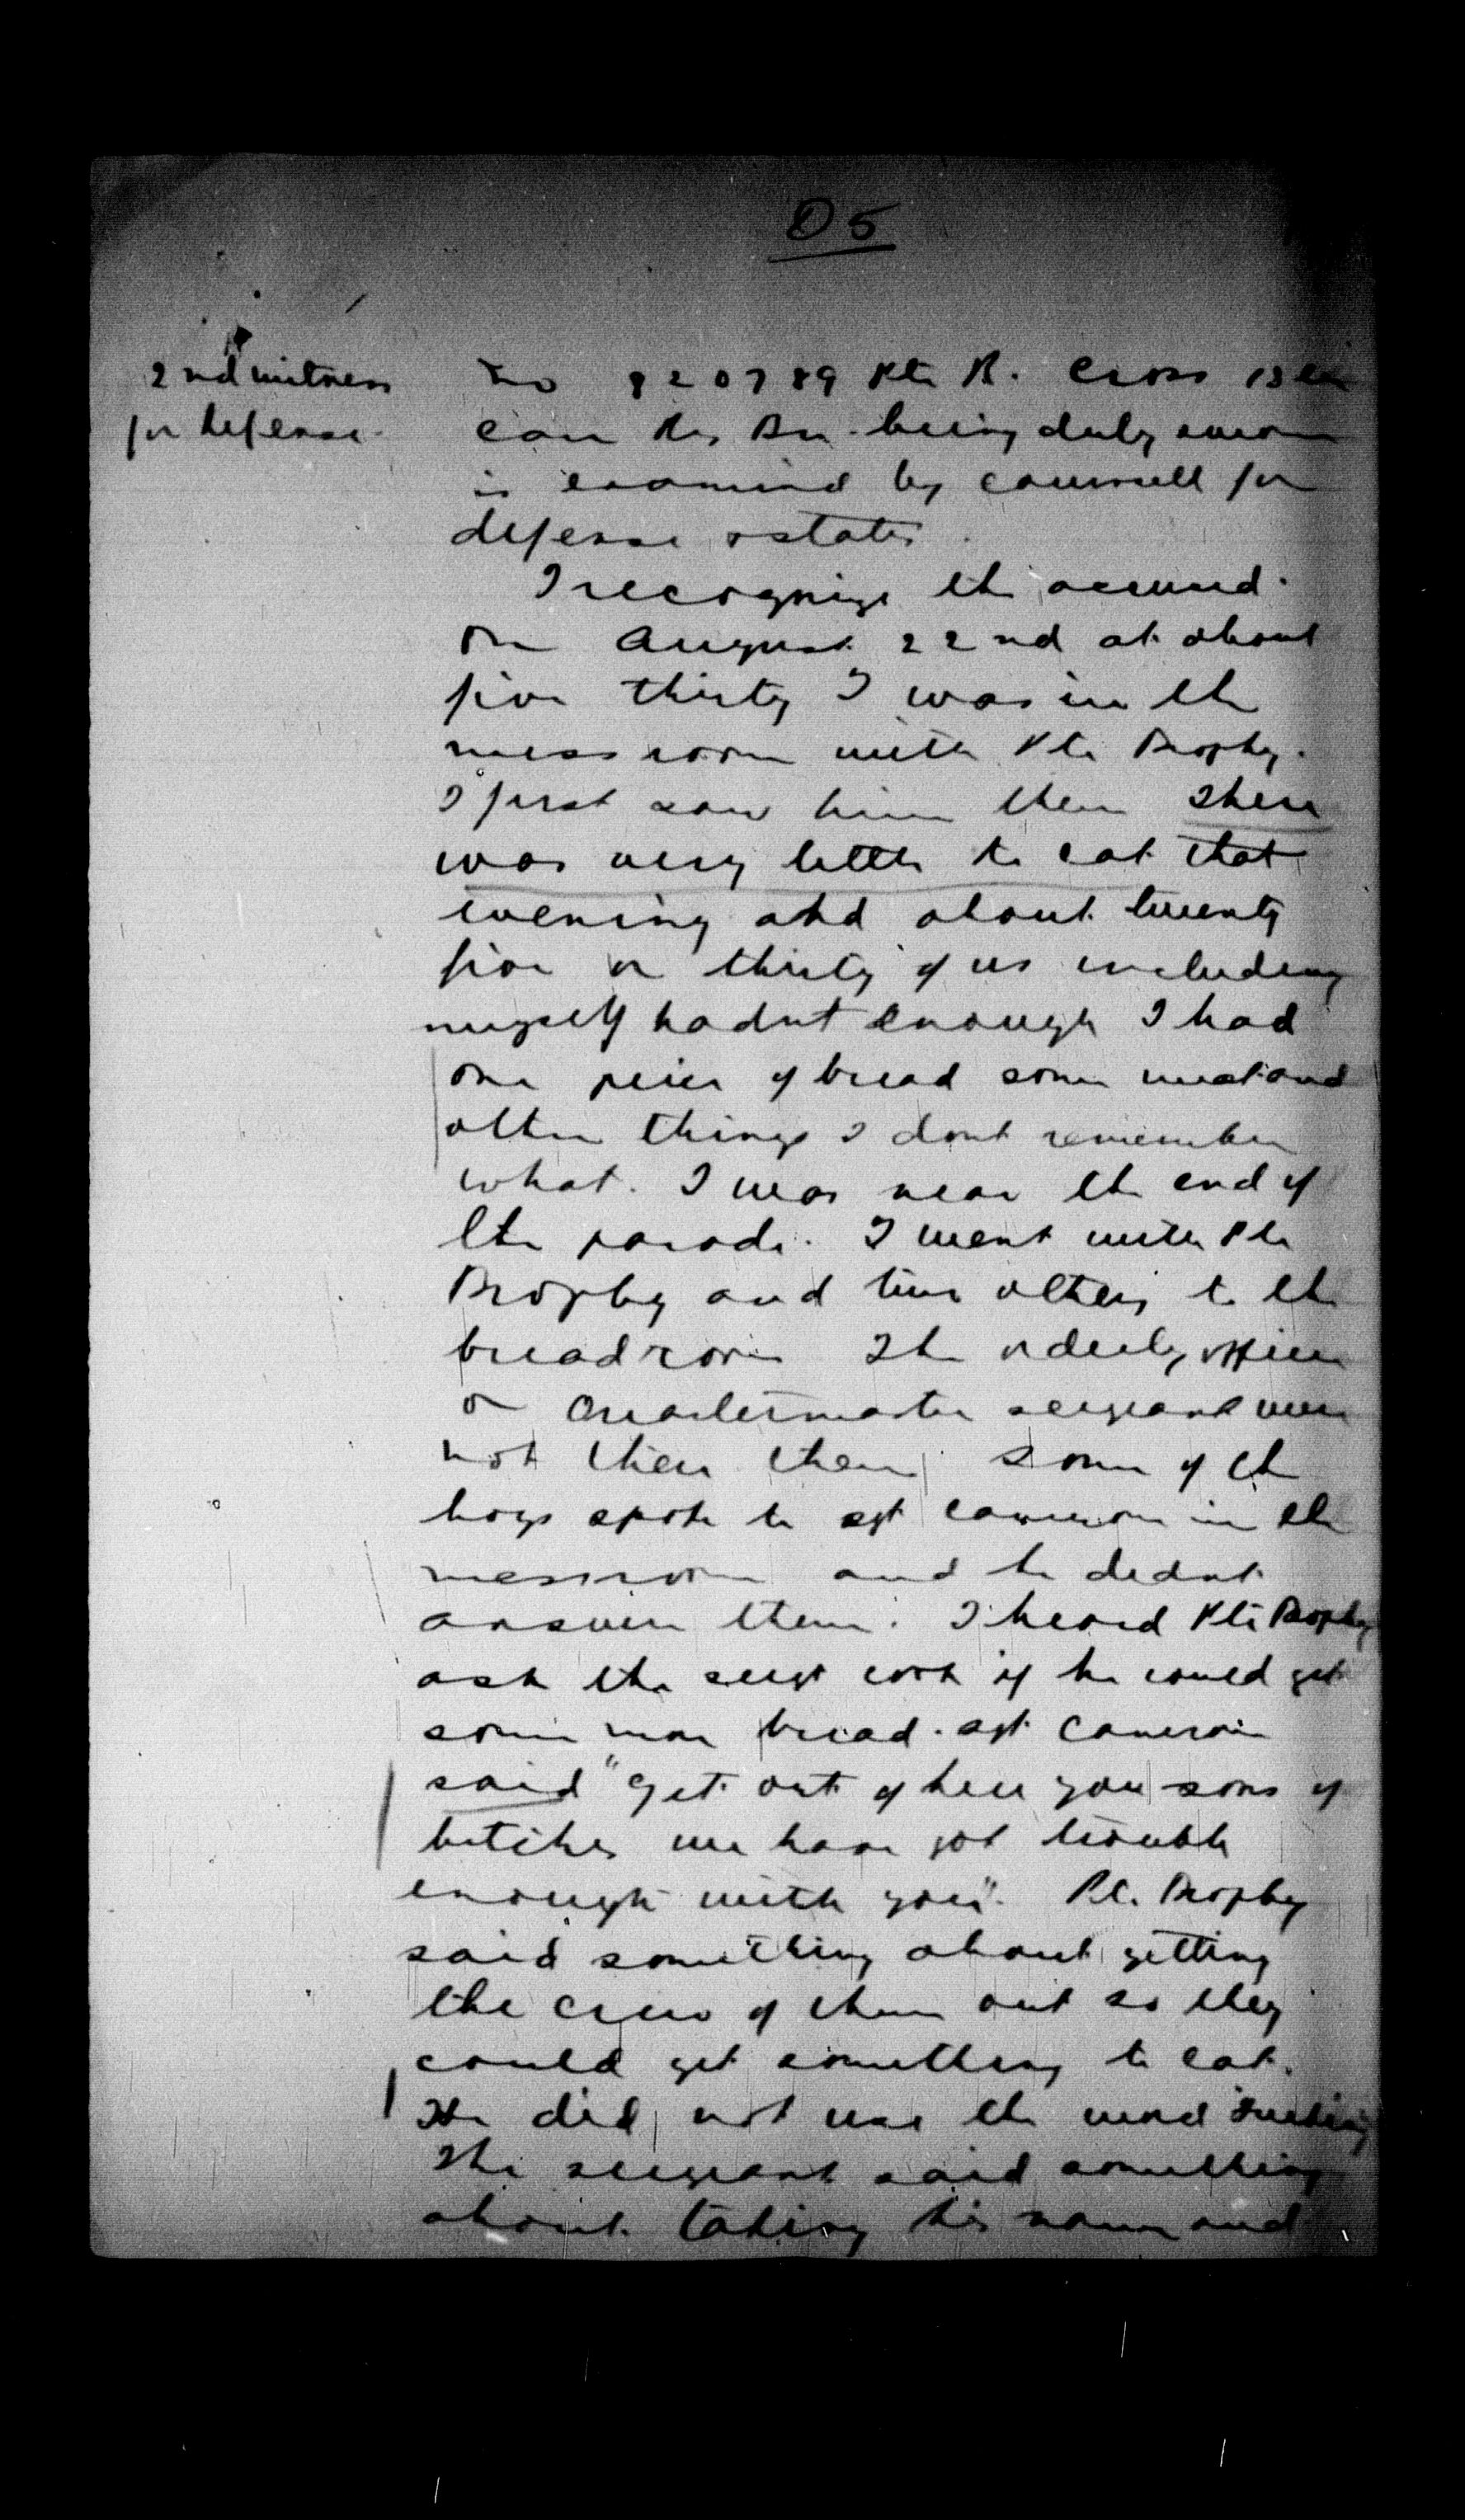 D5
2nd witness
for defense.
No 820789 Pte R. Cross 18th
Can Res Bn. being duly sworn
is examined by counsell for
defense & states
I recognize the accused.
On August 22nd at about
five thirty I was in the
mess room with Pte Brophy.
I first saw him then There
was very little to eat that
evening and about twenty
five or thirty of us including
myself hadnt enough I had
one piece of bread some meat and
other things I dont remember
what. I was near the end of
the parade. I went with Pte
Brophy and two others to the
bread room The orderly officer
or Quartermaster sergeant were
not there then Some of the
boys spoke to sgt Cameron in the
messroom and he didnt
answer them. I heard Pte Brophy
ask the sergt cook if he could get
some more bread. sgt Cameron
said "get out of here you sons of
bitches we have got trouble
enough with you". Pte. Brophy
said something about getting
the crew of them out so they
could get something to eat.
He did not use the word
The sergeant said something
about taking his name and